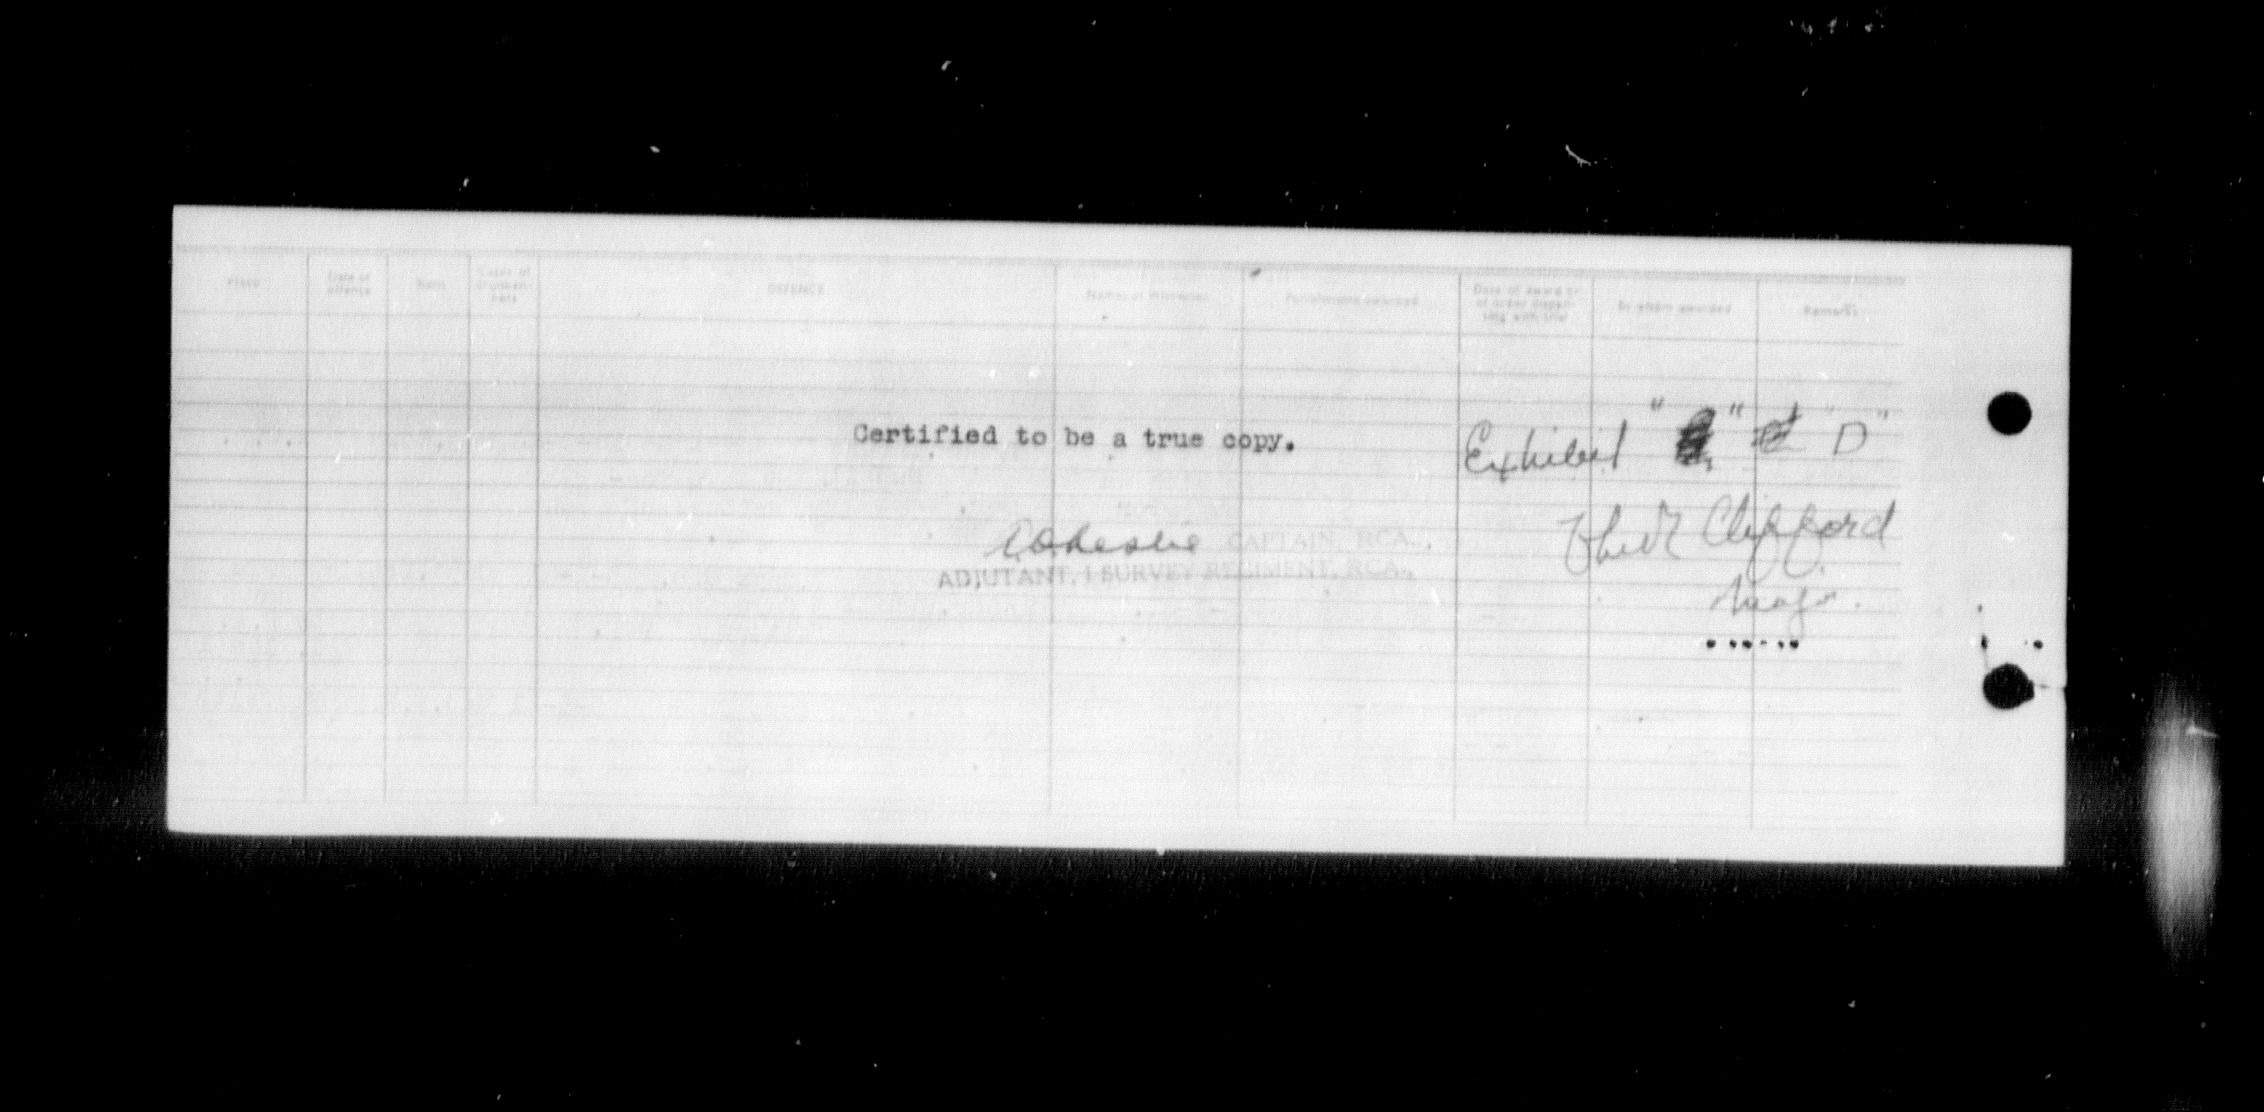 Place Date of offence Rank Cases of drunkenness OFFENCE Names of Witnesses Punishment awarded Date of award or of order dispensing with trial By whom awarded Remarks
Certified to be a true copy.
Exhibit "D"
CAPTAIN, RCA.,
ADJUTANT, 1 SURVEY REGIMENT, RCA.,
Clifford
Major.